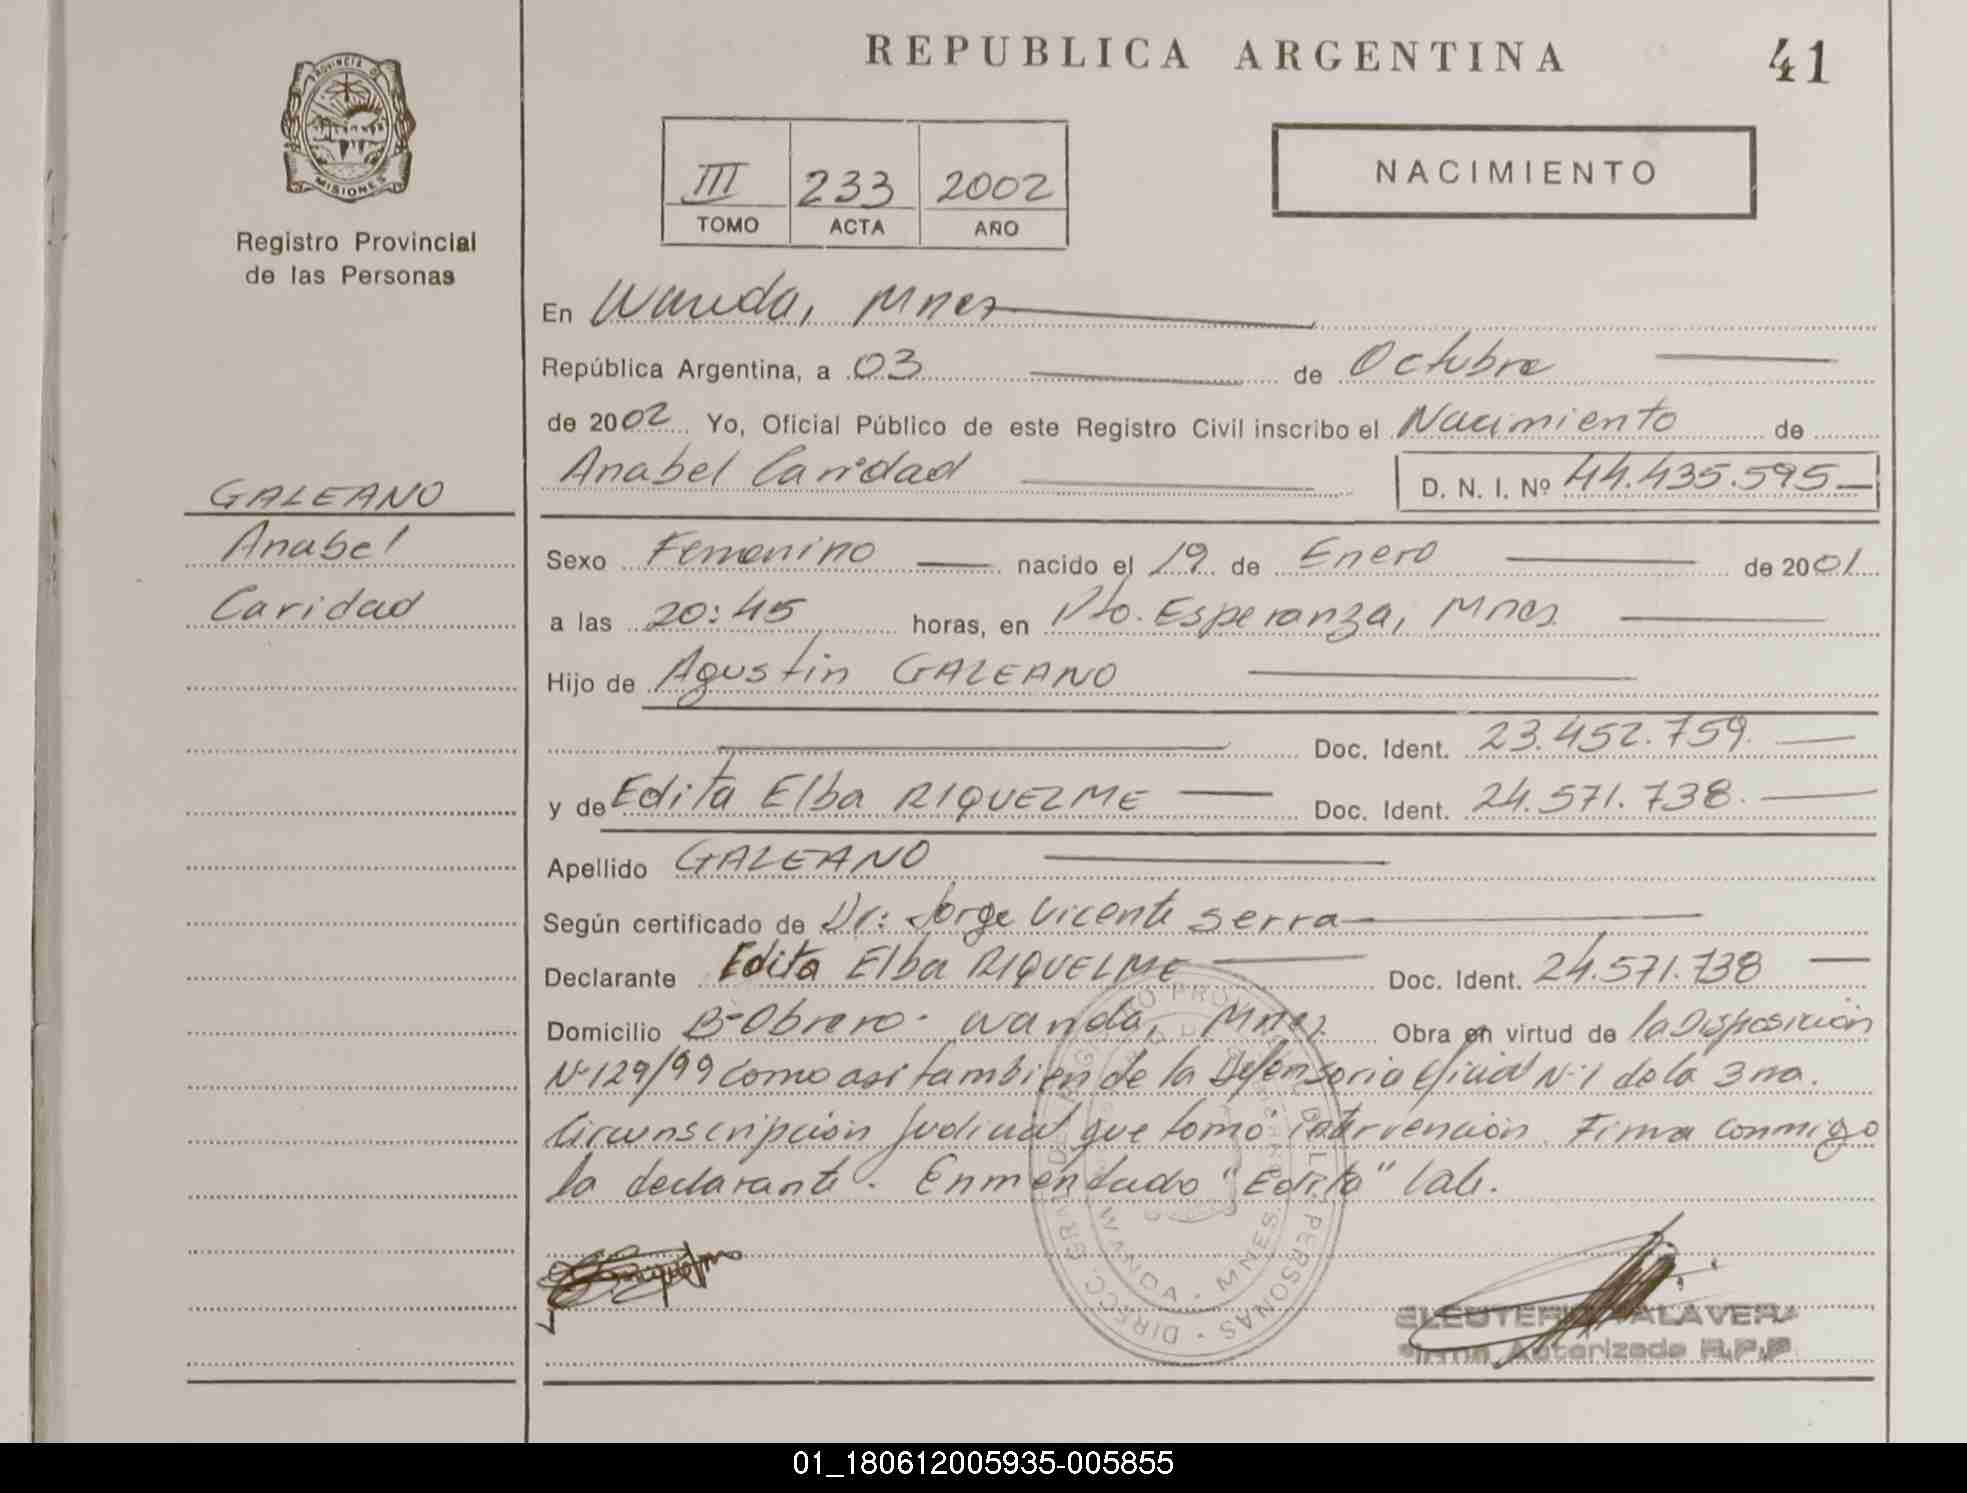 REPUBLICA ARGENTINA
41
PROVINCIA D
MISIONES
Registro Provincial
de las Personas
III 233 2002
TOMO ACTA AÑO
NACIMIENTO
En Wanda, Mnes
República Argentina, a 03 de Octubre
de 2002 Yo, Oficial Público de este Registro Civil inscribo el Nacimiento de
Anabel Caridad D. N. I. Nº 44.435.595
GALEANO
Anabel
Caridad
Sexo Femenino nacido el 19 de Enero de 2001
a las 20:45 horas, en Pto. Esperanza, Mnes
Hijo de Agustin GALEANO
Doc. Ident. 23.452.759.
y de Edita Elba RIQUELME Doc. Ident. 24.571.738.
Apellido GALEANO
Según certificado de Dr: Jorge Vicente Serra
Declarante Edita Elba RIQUELME Doc. Ident. 24.571.738
Domicilio Bº Obrero - Wanda, Mnes. Obra en virtud de la Disposición
Nº 129/99 como asi tambien de la Defensoria oficial Nº 1 de la 3ra.
Circunscripción Judicial que tomó intervención. Firma conmigo
la declarante. Enmendado "Edita" Vale.
DIRECC. GRAL. DEL REGISTRO PROVINCIAL DE LAS PERSONAS
WANDA - MNES.
ELEUTERIO TALAVERA
Firma Autorizada R.P.P.
01_180612005935-005855